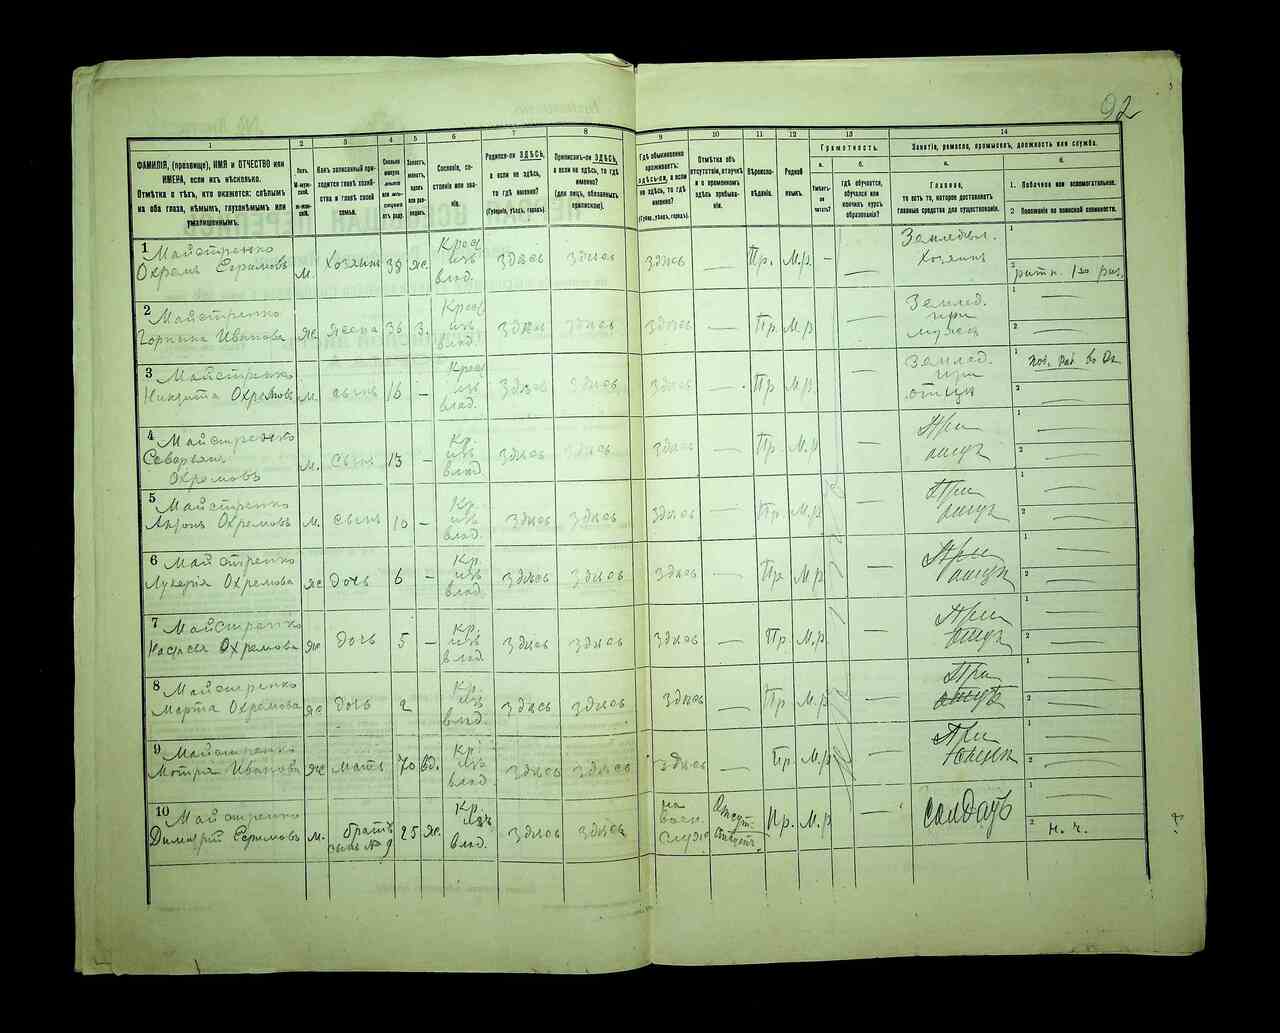 92
1 2 3 4 5 6 7 8 9 10 11 12 13 14
ФАМИЛІЯ, (прозвище), ИМЯ и ОТЧЕСТВО или ИМЕНА, если ихъ нѣсколько.
Отмѣтка о тѣхъ, кто окажется: слѣпымъ на оба глаза, нѣмымъ, глухонѣмымъ или умалишеннымъ.
Полъ.
М-мужской.
ж-женск.
Какъ записанный приходится главѣ хозяйства и главѣ своей семьи.
Сколько минуло лѣтъ
отъ роду.
Холостъ, женатъ, вдовъ или разведенъ.
Сословіе, состояніе или званіе.
Родился-ли ЗДѢСЬ, а если не здѣсь, то гдѣ именно?
(Губернія, уѣздъ, городъ).
Приписанъ-ли ЗДѢСЬ, а если не здѣсь, то гдѣ именно?
(для лицъ, обязанныхъ припискою).
Гдѣ обыкновенно проживаетъ: здѣсь-ли, а если не здѣсь, то гдѣ именно?
(Губерн., уѣздъ, городъ).
Отмѣтка объ отсутствіи, отлучкѣ и о временномъ здѣсь пребываніи.
Вѣроисповѣданіе.
Родной языкъ.
Грамотность.
а.
Умѣетъ-ли читать?
б.
гдѣ обучается, обучался или кончилъ курсъ образованія?
Занятіе, ремесло, промыселъ, должность или служба.
а.
Главное,
то есть то, которое доставляетъ главныя средства для существованія.
б.
1. Побочное или вспомогательное.
2 Положеніе по воинской повинности.
1 Майстренко Охремъ Ефимовъ М. Хозяинъ 38 же. Крест. изъ влад. Здѣсь Здѣсь Здѣсь — Пр. М.р. — — Земледѣл. Хозяинъ 1 2
2 Майстренко Горпина Иванова же жена 36 З. Крест. изъ влад. Здѣсь Здѣсь Здѣсь — Пр М.р — Землед. при мужѣ 1 — 2 —
3 Майстренко Никита Охремовъ М. сынъ 16 — Крест. изъ влад. Здѣсь Здѣсь Здѣсь — Пр М.р. — Землед. при отцѣ 1 2 —
4 Майстренко Северьянъ Охремовъ м. сынъ 13 — Кр. изъ влад. Здѣсь Здѣсь Здѣсь — Пр М.р — При отцѣ 1 — 2 —
5 Майстренко Антонъ Охремовъ м. сынъ 10 — Кр. изъ влад. Здѣсь Здѣсь Здѣсь — Пр М.р — При отцѣ 1 — 2 —
6 Майстренко Лукерія Охремова же Дочь 6 — Кр. изъ влад. Здѣсь Здѣсь Здѣсь — Пр М.р — При отцѣ 1 — 2 —
7 Майстренко Настасья Охремова же Дочь 5 — Кр. изъ влад. Здѣсь Здѣсь Здѣсь — Пр М.р. — При отцѣ 1 — 2 —
8 Майстренко Марта Охремова же Дочь 2 Кр. изъ влад. Здѣсь Здѣсь Здѣсь — Пр М.р — При отцѣ 2 —
9 Майстренко Мотря Иванова же мать 70 вд. Кр. изъ влад. Здѣсь Здѣсь Здѣсь — Пр. М.р — При 1 — 2 —
10 Майстренко Димитрій Ефимовъ м. братъ сынъ № 9 25 же. Кр. изъ влад. Здѣсь Здѣсь на воен. службѣ Пр. М.р — солдатъ 1 — 2 н. ч.